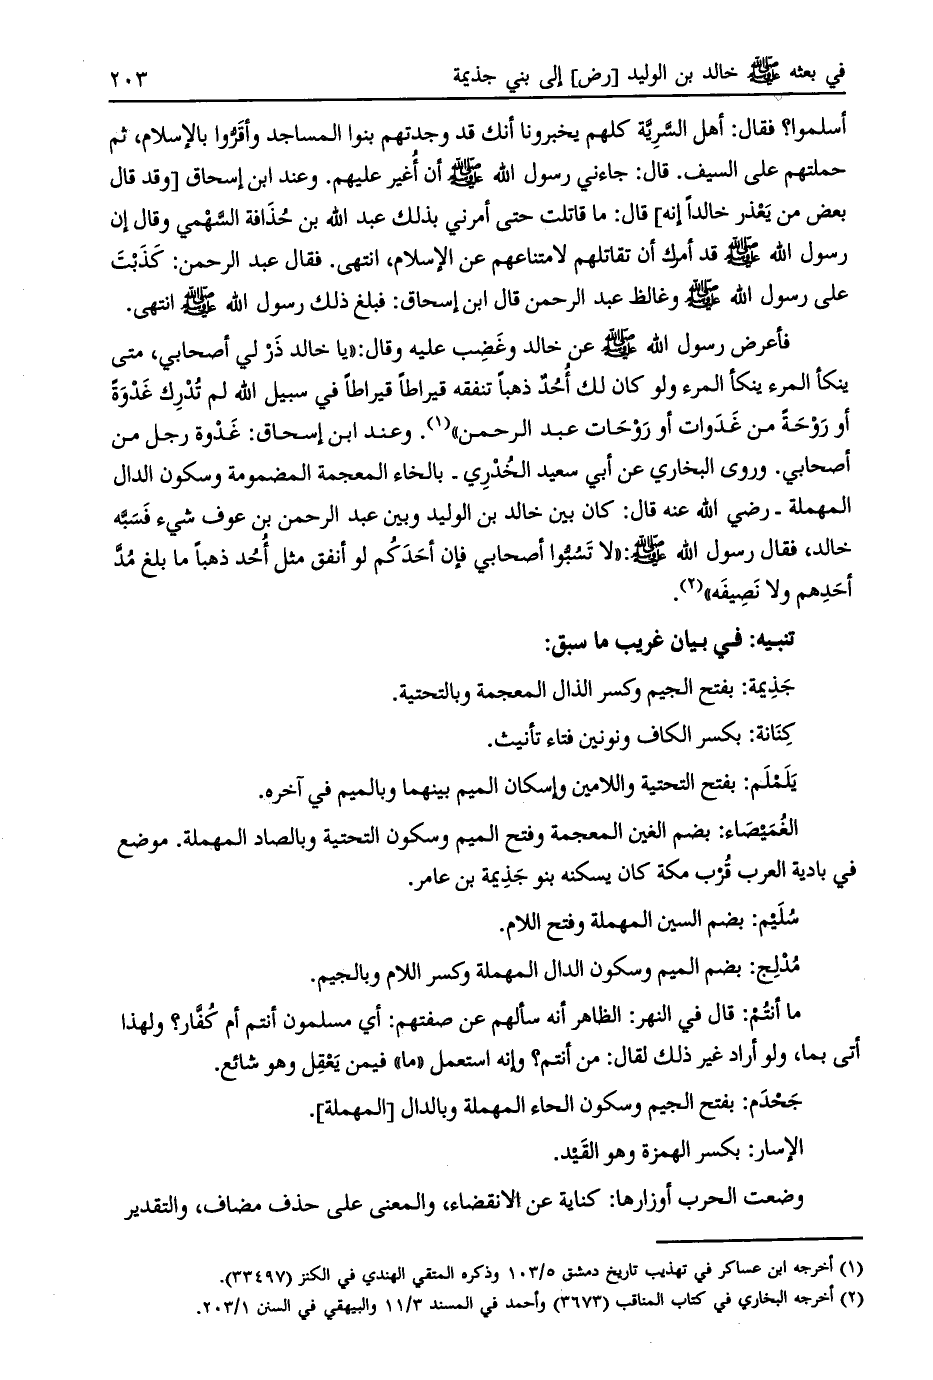 في بعثه ﷺ خالد بن الوليد [رض] إلى بني جذيمة ٢٠٣
أسلموا؟ فقال: أهل السَّرِيَّة كلهم يخبرونا أنك قد وجدتهم بنوا المساجد وأقَرُّوا بالإسلام، ثم
حملتهم على السيف. قال: جاءني رسول الله ﷺ أن أُغير عليهم. وعند ابن إسحاق [وقد قال
بعض من يَعْذر خالداً إنه] قال: ما قاتلت حتى أمرني بذلك عبد الله بن حُذَافة السَّهْمي وقال إن
رسول الله ﷺ قد أمرك أن تقاتلهم لامتناعهم عن الإسلام، انتهى. فقال عبد الرحمن: كَذَبْتَ
على رسول الله ﷺ وغالظ عبد الرحمن قال ابن إسحاق: فبلغ ذلك رسول الله ﷺ انتهى.
فأعرض رسول الله ﷺ عن خالد وغَضِب عليه وقال: «يا خالد ذَرْ لي أصحابي، متى
ينكأ المرء ينكأ المرء ولو كان لك أُحُدٌ ذهباً تنفقه قيراطاً قيراطاً في سبيل الله لم تُدْرِك غَدْوَةً
أو رَوْحَةً من غَدَوات أو رَوْحَات عبد الرحمن»(١). وعند ابن إسحاق: غَدْوة رجل من
أصحابي. وروى البخاري عن أبي سعيد الخُدْرِي ـ بالخاء المعجمة المضمومة وسكون الدال
المهملة ـ رضي الله عنه قال: كان بين خالد بن الوليد وبين عبد الرحمن بن عوف شيء فَسَبَّه
خالد، فقال رسول الله ﷺ: «لا تَسُبُّوا أصحابي فإن أحَدَكُم لو أنفق مثل أُحُد ذهباً ما بلغ مُدَّ
أحَدِهم ولا نَصِيفَه»(٢).
تنبيه: في بيان غريب ما سبق:
جَذِيمة: بفتح الجيم وكسر الذال المعجمة وبالتحتية.
كِنَانة: بكسر الكاف ونونين فتاء تأنيث.
يَلَمْلَم: بفتح التحتية واللامين وإسكان الميم بينهما وبالميم في آخره.
الغُمَيْصَاء: بضم الغين المعجمة وفتح الميم وسكون التحتية وبالصاد المهملة. موضع
في بادية العرب قُرْب مكة كان يسكنه بنو جَذِيمة بن عامر.
سُلَيْم: بضم السين المهملة وفتح اللام.
مُدْلِج: بضم الميم وسكون الدال المهملة وكسر اللام وبالجيم.
ما أنتُمْ: قال في النهر: الظاهر أنه سألهم عن صفتهم: أي مسلمون أنتم أم كُفَّار؟ ولهذا
أتى بما، ولو أراد غير ذلك لقال: من أنتم؟ وإنه استعمل «ما» فيمن يَعْقِل وهو شائع.
جَحْدَم: بفتح الجيم وسكون الحاء المهملة وبالدال [المهملة].
الإسار: بكسر الهمزة وهو القَيْد.
وضعت الحرب أوزارها: كناية عن الانقضاء، والمعنى على حذف مضاف، والتقدير
(١) أخرجه ابن عساكر في تهذيب تاريخ دمشق ١٠٣/٥ وذكره المتقي الهندي في الكنز (٣٣٤٩٧).
(٢) أخرجه البخاري في كتاب المناقب (٣٦٧٣) وأحمد في المسند ١١/٣ والبيهقي في السنن ٢٠٣/١.